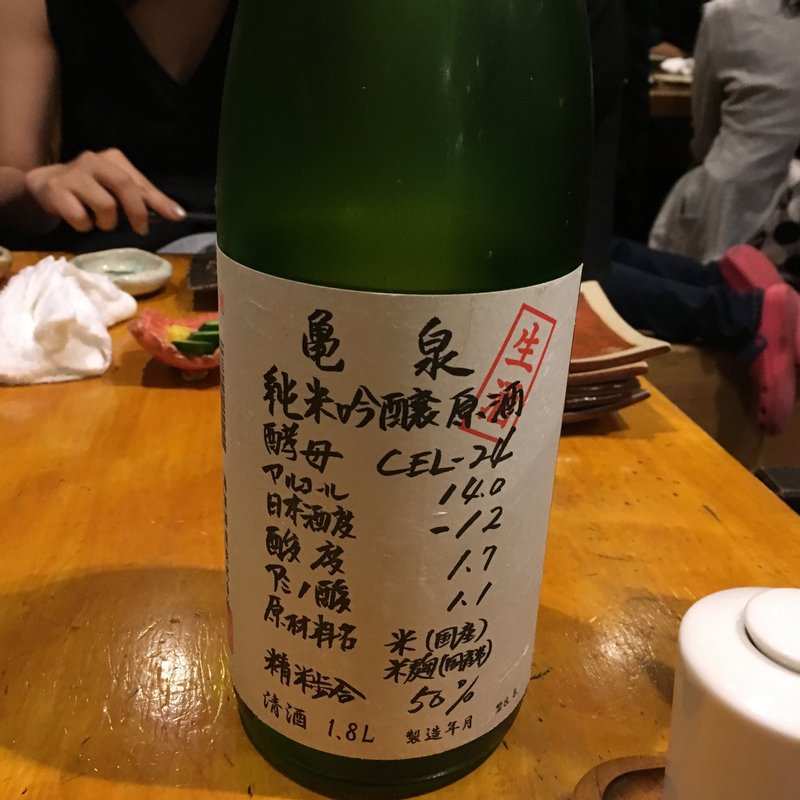 亀泉
生酒
純米吟醸原酒
酵母 CEL-24
アルコール 14.0
日本酒度 -12
酸度 1.7
アミノ酸 1.1
原材料名 米(国産)
米麹(国産米)
精米歩合 50%
清酒 1.8L 製造年月 28.8.